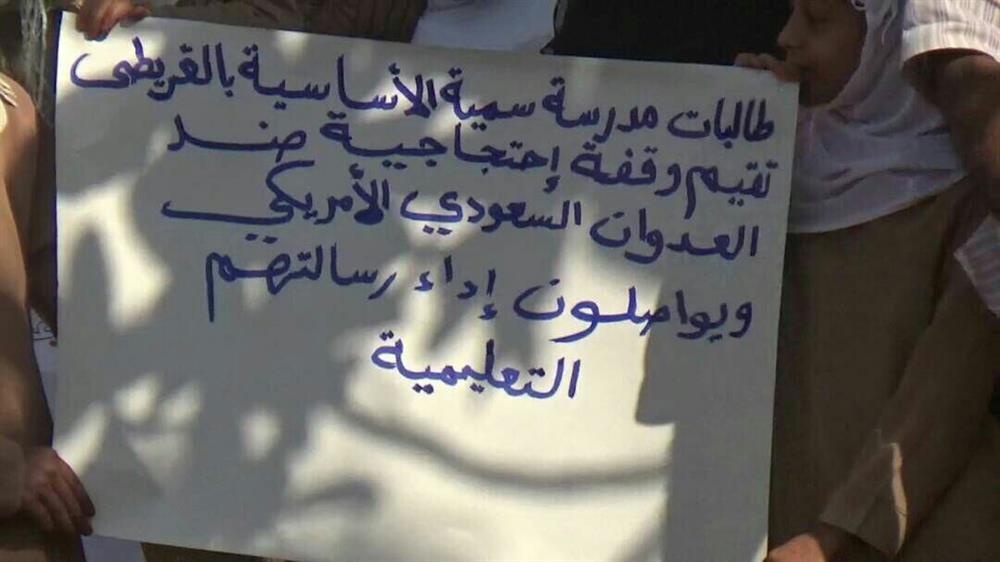 طالبات مدرسة سمية الأساسية بالقريطي
تقيم وقفة إحتجاجية ضد
العدوان السعودي الأمريكي
ويواصلون إداء رسالتهم
التعليمية